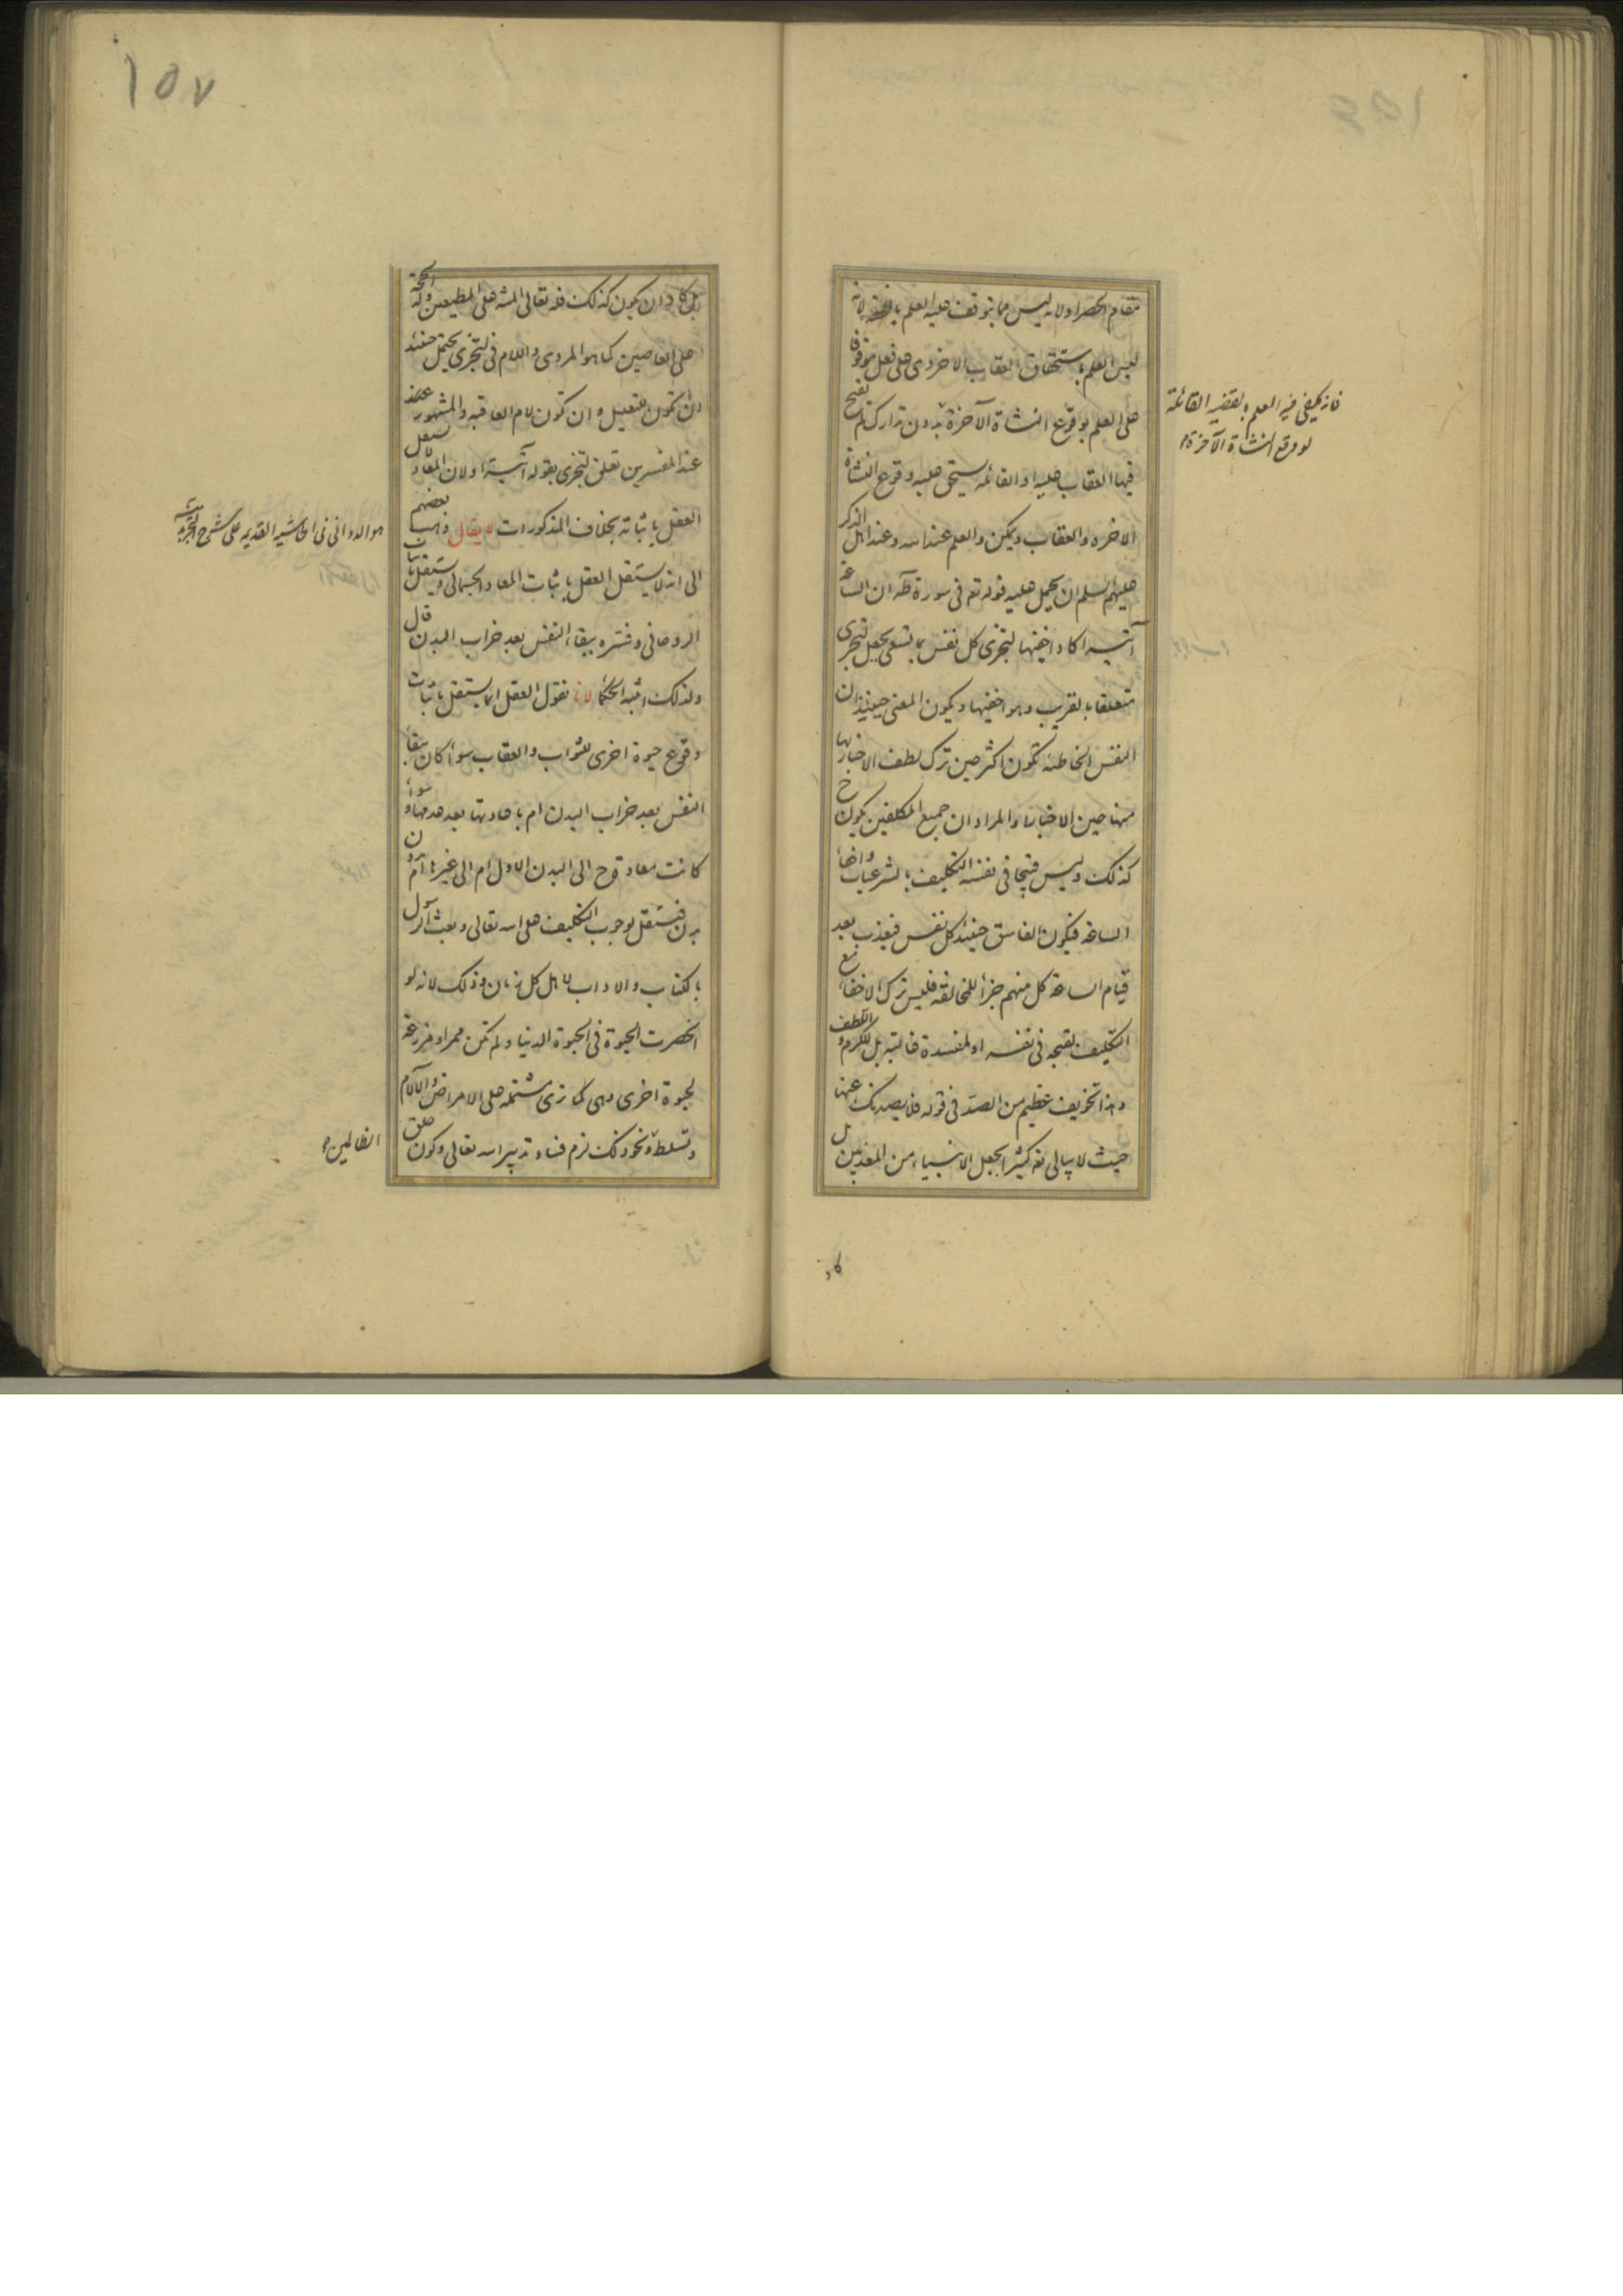 مقام الحصر اولانه ليس مما يتوقف عليه العلم لانه
ليس العلم باستحقاق العقاب الاخروى على فعل موقوفا
على العلم بوقوع النشاة الآخرة بدون تدارك لم تقبح
فيها العقاب عليه او القائمة يستحق عليه وقوع النشاة
الاخره والعقاب ويمكن والعلم عند الله وعند اهل الذكر
عليهم السلم ان يحمل عليه قوله تع فى سورة طه ان الساعة
آتية اكاد اخفيها لتجزى كل نفس بما تسعى بجعل لتجزى
متعلقا بالقريب وهو اخفيها ويكون المعنى حينئذ ان
النفس الخاطئه تكون اكثر حين ترك لطف الاخبار بها
منها حين الاخبار والمراد ان جميع المكلفين يكون ح
كذلك وليس قبيحا فى نفسه التكليف بالشرعيات واخفاء
الساعة فيكون الفاسق حينئذ كل نفس فيعذب بعد
قيام الساعة كل منهم جزاء للمخالفة فليس ترك الاخفاء مع
التكليف لقبحه فى نفسه او لمفسدة غالبة بل للكرم واللطف
وهذا تخويف عظيم من الصد فى قوله فلا يصدنك عنها
حيث لا يبالى تع كثيرا لجعل الانبياء من المعذبين بل
كاد
فانه يكفى فيه العلم بالقضية القائلة
لو وقع النشاة الآخرة
١٥٧
بل كاد ان يكون كذلك فله تعالى المنة على المطيعين وله الحجة
على العاصين كما هو المروى واللام فى لتجزى يحتمل حينئذ
ان تكون للتعليل وان تكون لام العاقبه والمشهور
عند المفسرين تعلق لتجزى بقوله آتية اولان المعاد لا يستقل
العقل باثباته بخلاف المذكورات لا يقال ذهب بعضهم
الى انه لا يستقل العقل باثبات المعاد الجسمانى ويستقل باثبات
الروحانى وفسره ببقاء النفس بعد خراب البدن قال
ولذلك اثبته الحكماء لانا نقول العقل انما يستقل باثبات
وقوع حيوة اخرى للثواب والعقاب سواء كان ببقاء
النفس بعد خراب البدن ام باعادتها بعد عدمها وسواء
كانت معادة ح الى البدن الاول ام الى غيره ام بدون
بدن فيستقل بوجوب التكليف على الله تعالى وبعث الرسل
بالكتاب والاداب لاهل كل زمان وذلك لانه لو
انحصرت الحيوة فى الحيوة الدنيا ولم تكن ممرا ومزرعة
لحيوة اخرى وهى كما نرى مشتملة على الامراض والآلام
وتسلط ونحو ذلك لزم فساد تدبير الله تعالى وكون خلق
هو الدوانى فى الحاشية القديمه على شرح التجريد
الظالمين